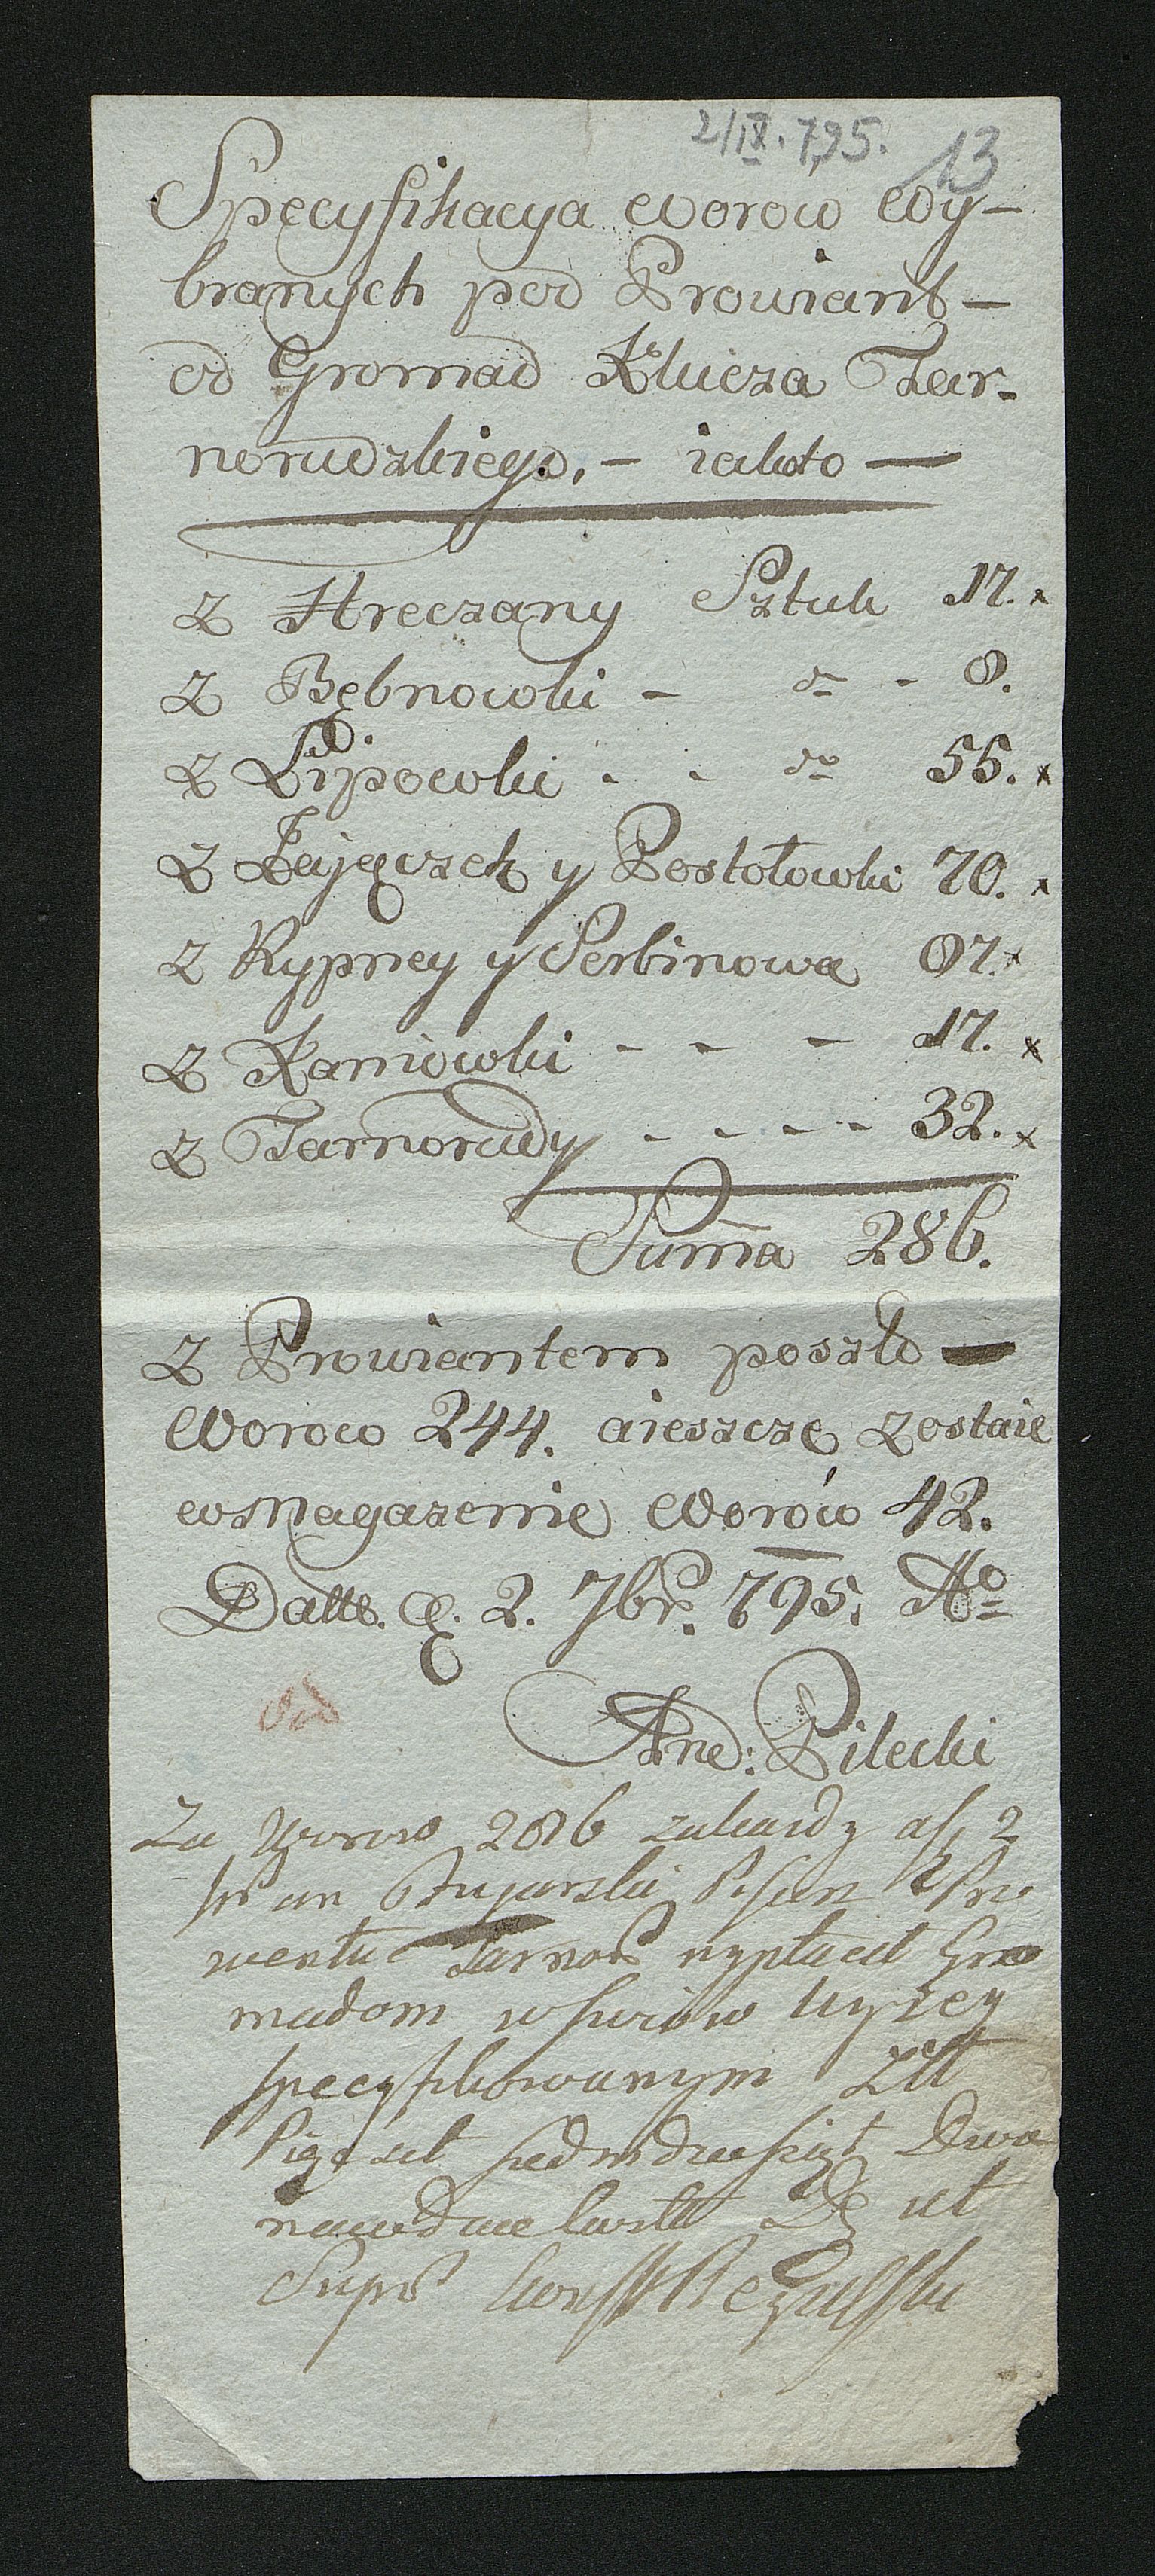 2/IX. 795.
13
Specyfikacya worow wy-
branych pod Prowiant -
od Gromad Klucza Tar-
norudzkiego, - iako to -
Z Hreczany Sztuk 17. x
Z Bębnowki - do - 8.
Z Lipowki . . do 55. x
Z Zajączek y Postołowki 70. x
Z Rypney y Serbinowa 87. x
Z Kaniowki - - - 17. x
Z Tarnorudy - - - - 32. x
Suma 286.
Z Prowiantem poszło -
Worow 244. a ieszcze zostaie
w Magazenie Worów 42.
Datt. D. 2. 7br. 795. Ao
And: Pilecki
Za Worow 286 za każdy a f 2
Pisarz Pro
wentu Tarnor wypłacił Gro
madom wyzey
specyfikowanym Złł
Pięcset siedmdziesiąt Dwa
ut
Supra